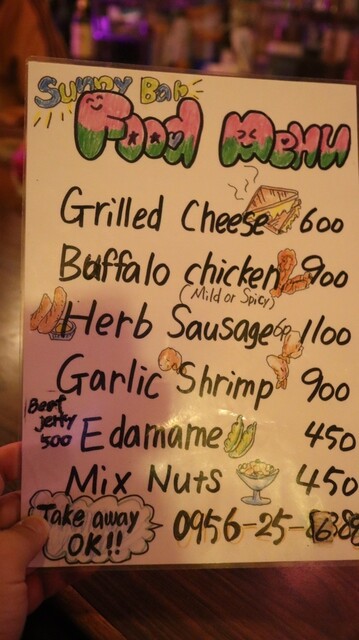 Sunny Bar
Food Menu
Grilled Cheese 600
Buffalo chicken 900
(Mild or Spicy)
Herb Sausage 6p 1100
Garlic Shrimp 900
Beef
jerky
500
Edamame 450
Mix Nuts 450
Take away
OK!!
0956-25-